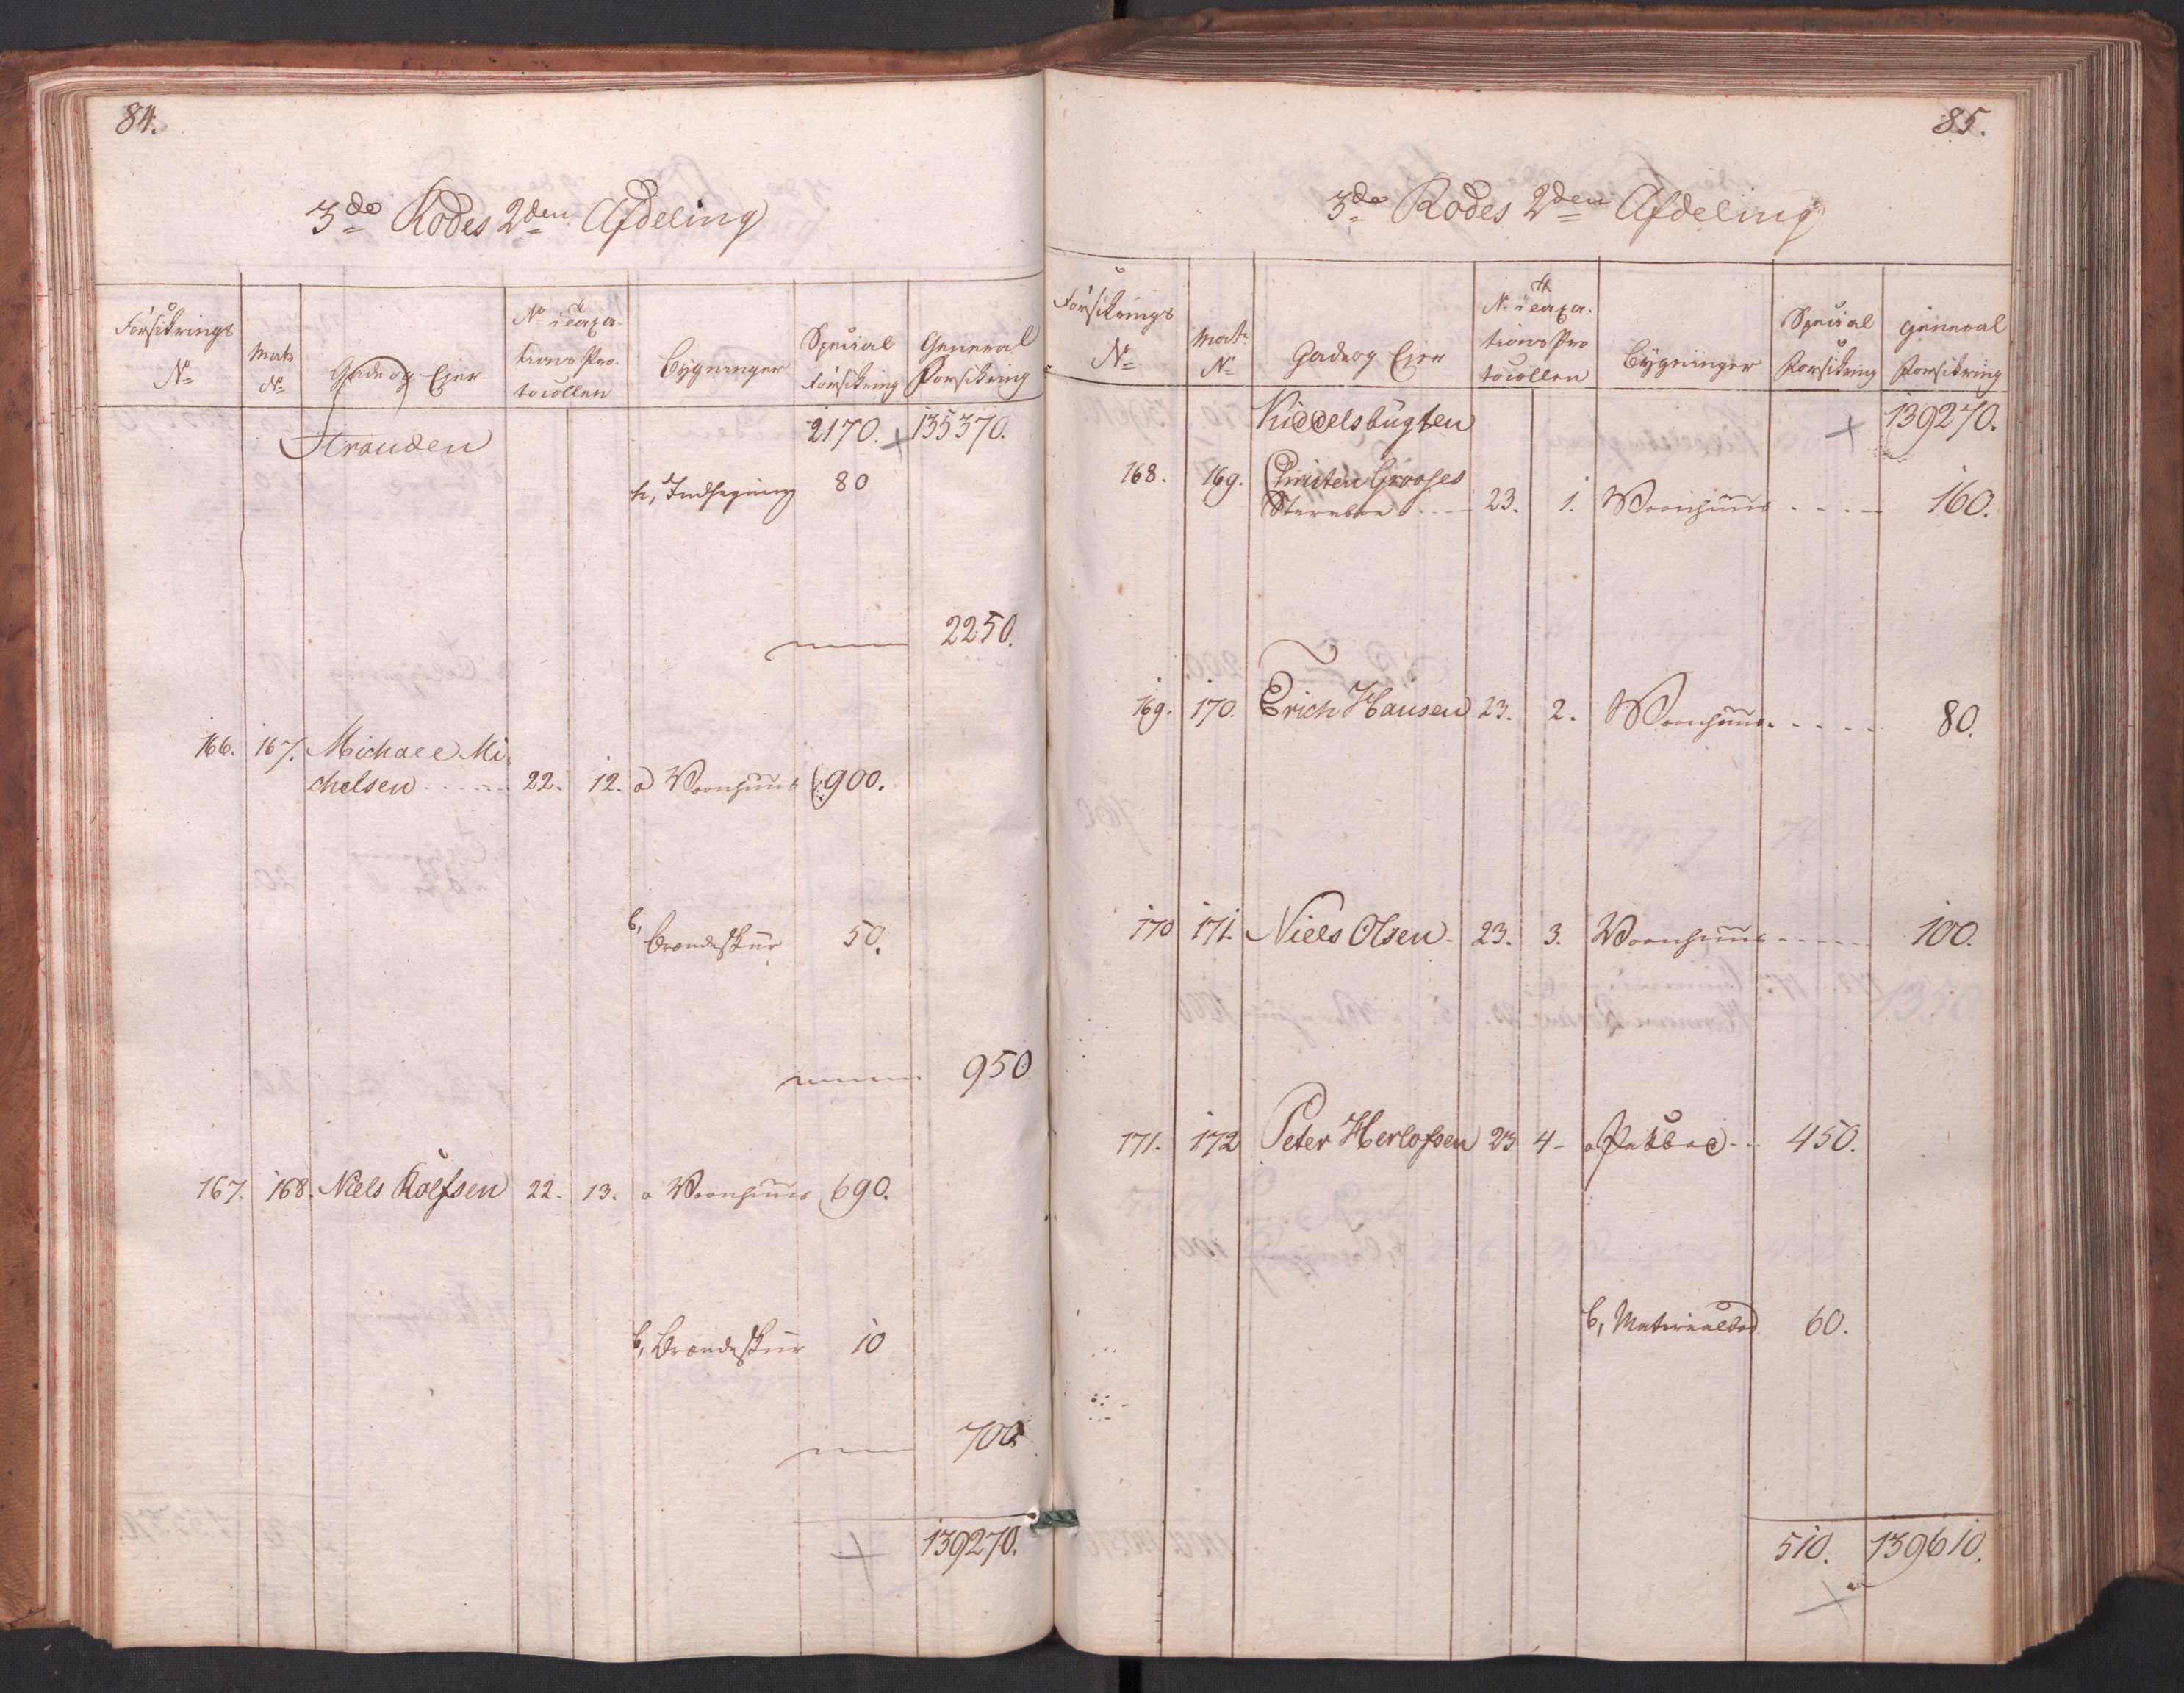 84.
3de Rodes 2den Afdeling
Forsikrings No
Matr No
Gade og Ejer
No i Taxationsprotocollen
Bygninger
Special Forsikring
General Forsikring
Stranden
2170. 135370.
h, Indhegning 80
2250.
166. 167. Michael Mi-
chelsen 22. 12. a Vaanhuus 900.
b, Brændeskuur 50.
950
167. 168. Niels Rolfsen 22. 13. a Vaanhuus 690.
b, Brændeskuur 10
700.
139270.
85.
3de Rodes 2den Afdeling
Forsikrings No
Matr No
Gade og Ejer
No i Taxationsprotocollen
Bygninger
Special Forsikring
General Forsikring
Kiddelsbugten 139270.
168. 169. Christen Grooses
Stervboe 23. 1. Vaanhuus 160.
169. 170. Erich Hansen 23. 2. Vaanhuus 80.
170 171. Niels Olsen 23. 3. Vaanhuus 100.
171. 172 Peter Herlofsen 23 4 a Pakboe 450.
b, Materialbod 60.
510. 139610.